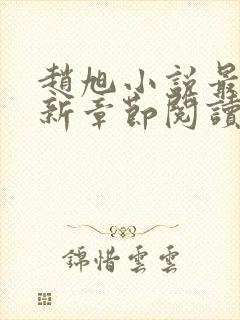 趙旭小說最
新章節閱讀
錦惜雲雲